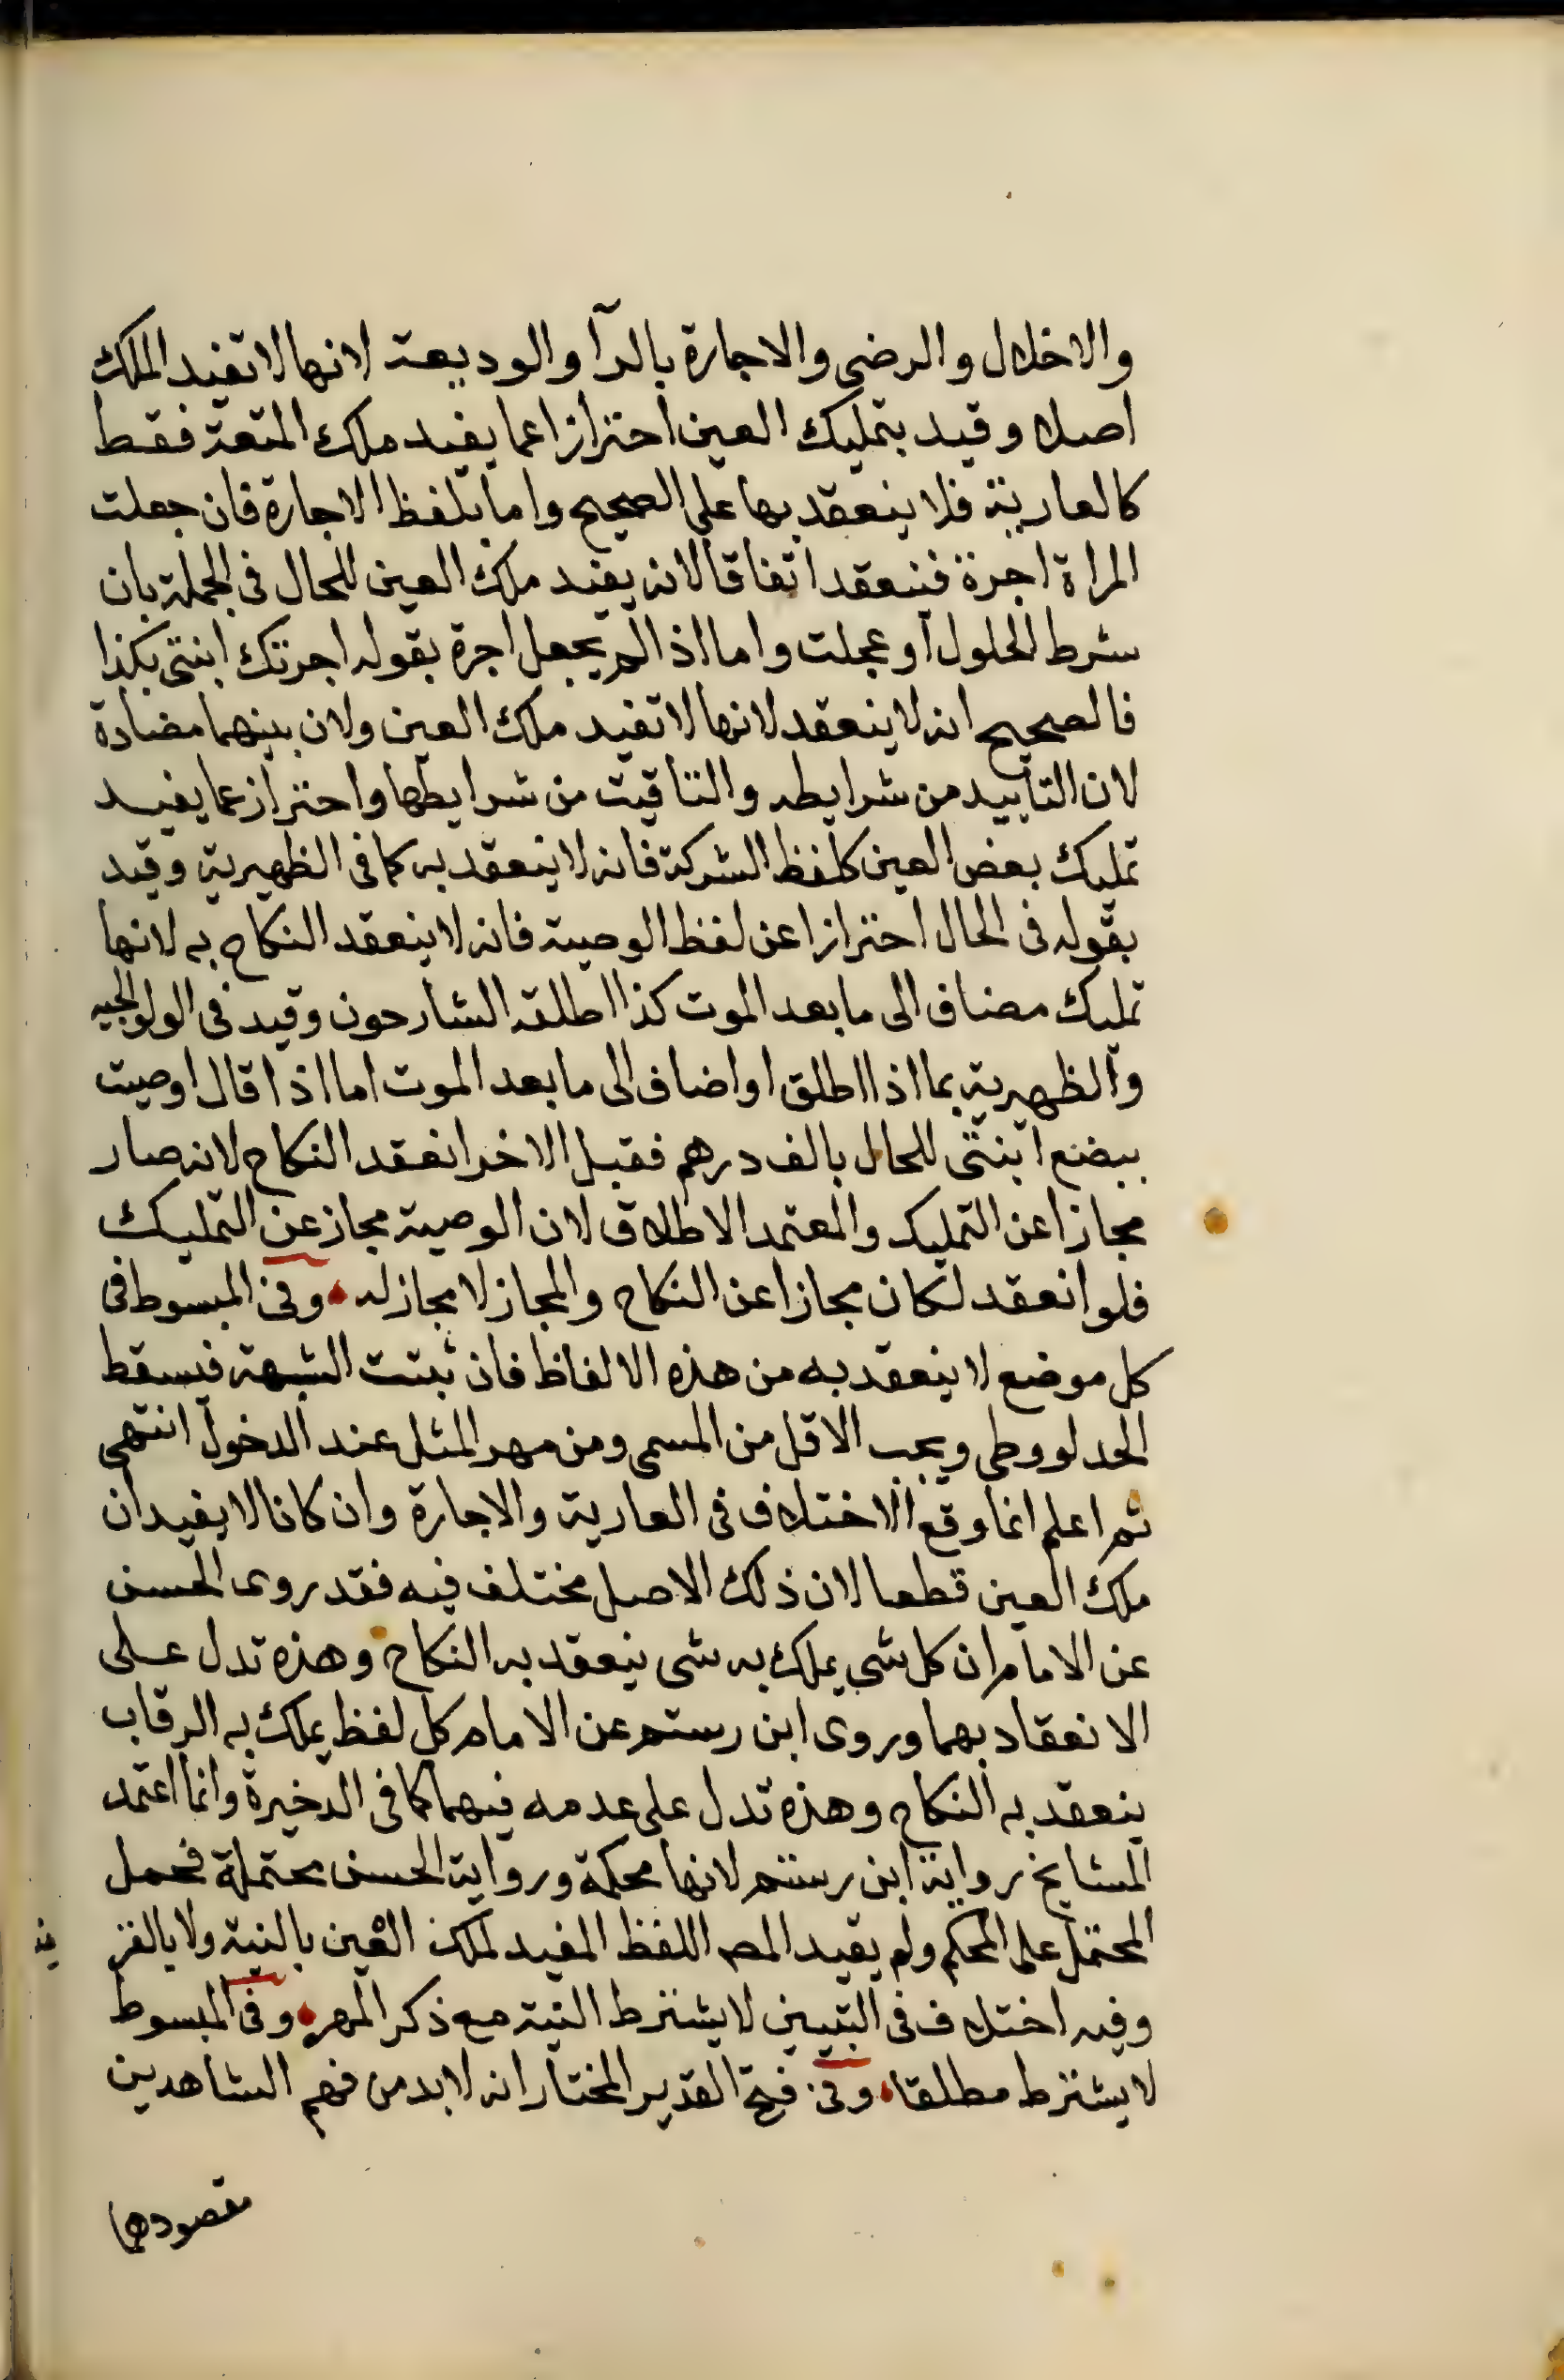 والاخلال والرضى والاجارة بالرآ والوديعة لانها لا تفيد الملك
اصلا وقيد بتمليك العين احترازا عما يفيد ملك المتعة فقط
كالعارية فلا ينعقد بها على الصحيح واما بلفظ الاجارة فان جعلت
المراة اجرة فينعقد اتفاقا لانه يفيد ملك العين للحال فى الجملة بان
شرط الحلول او عجلت واما اذا لم يجعل اجرة بقوله اجرتك ابنتى بكذا
فالصحيح انه لا ينعقد لانها لا تفيد ملك العين ولان بينهما مضادة
لان التابيد من شرايطه والتاقيت من شرايطها واحتراز عما يفيد
تمليك بعض العين كلفظ الشركة فانه لا ينعقد به كما فى الظهيرية وقيد
بقوله فى الحال احترازا عن لفظ الوصية فانه لا ينعقد النكاح به لانها
تمليك مضاف الى ما بعد الموت كذا اطلقه الشارحون وقيد فى الولوالجيه
والظهيرية بما اذا اطلق او اضاف الى ما بعد الموت اما اذا قال اوصيت
ببضع ابنتى للحال بالف درهم فقبل الاخر انعقد النكاح لانه صار
مجازا عن التمليك والمعتمد الاطلاق لان الوصية مجاز عن التمليك
فلو انعقد لكان مجازا عن النكاح والمجاز لا مجاز له وفى المبسوط فى
كل موضع لا ينعقد به من هذه الالفاظ فان ثبتت الشبهة فيسقط
الحد لو وطى ويجب الاقل من المسمى ومن مهر المثل عند الدخول انتهى
ثم اعلم انما وقع الاختلاف فى العارية والاجارة وان كانا لا يفيدان
ملك العين قطعا لان ذلك الاصل مختلف فيه فقد روى الحسن
عن الامام ان كل شى يملك به شى ينعقد به النكاح وهذه تدل على
الانعقاد بهما وروى ابن رستم عن الامام كل لفظ يملك به الرقاب
ينعقد به النكاح وهذه تدل على عدمه فيهما كما فى الدخيرة وانما اعتمد
المشايخ رواية ابن رستم لانها محكمة ورواية الحسن محتملة فحمل
المحتمل على المحكم ولم يقيد المصـ اللفظ المفيد لملك العين بالنية ولا بالقر
ينه
وفيه اختلاف فى التبيين لا يشترط النية مع ذكر المهر وفى المبسوط
لا يشترط مطلقا وفى فتح القدير المختار انه لا بد من فهم الشاهدين
مقصودهما